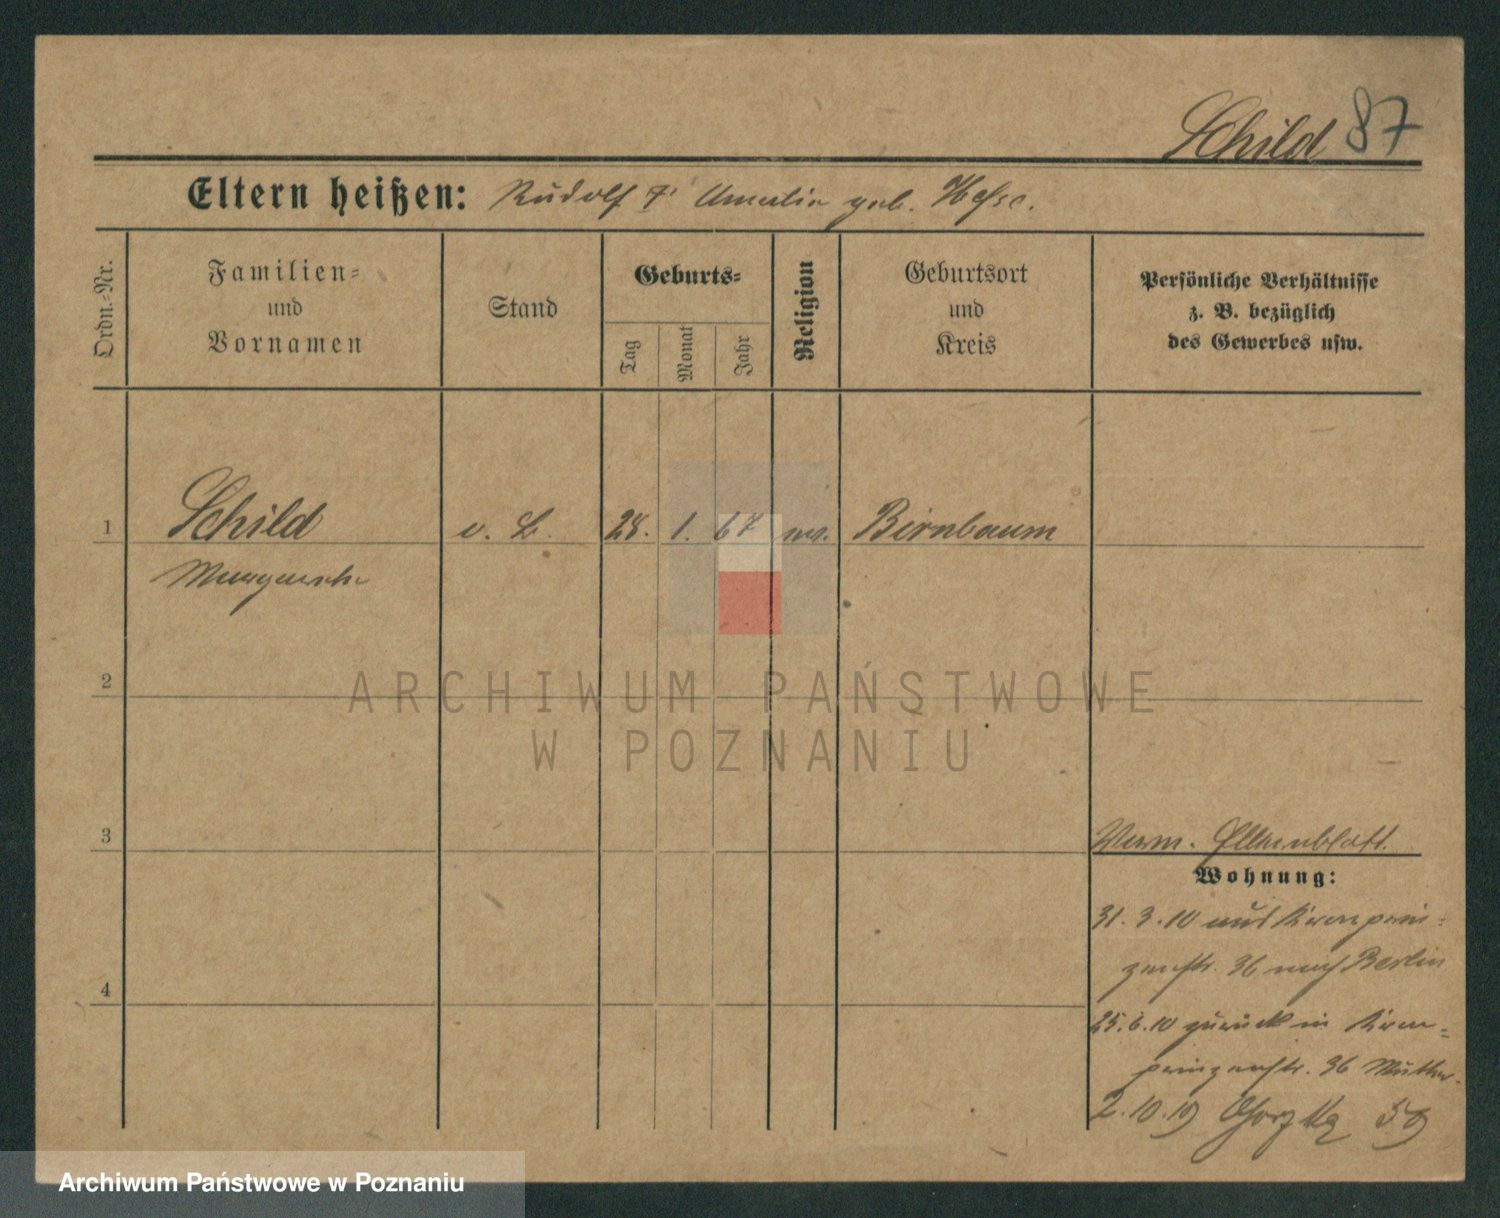 Schild 87
Eltern heißen: Rudolf u. Amalie geb. Hesse.
Ordn.-Nr.
Familien-
und
Vornamen
Stand
Geburts-
Tag
Monat
Jahr
Religion
Geburtsort
und
Kreis
Persönliche Verhältnisse
z. B. bezüglich
des Gewerbes usw.
1
Schild
o. B. 28. 1. 67 Birnbaum
Margarete
2
ARCHIWUM PAŃSTWOWE
W POZNANIU
3
Verm.
Wohnung:
31.3.10 aus Kronprin-
zenstr. 36 nach Berlin
25.6.10 zurück in Kron-
prinzenstr. 36 Mutter.
4
2.10.19
Archiwum Państwowe w Poznaniu